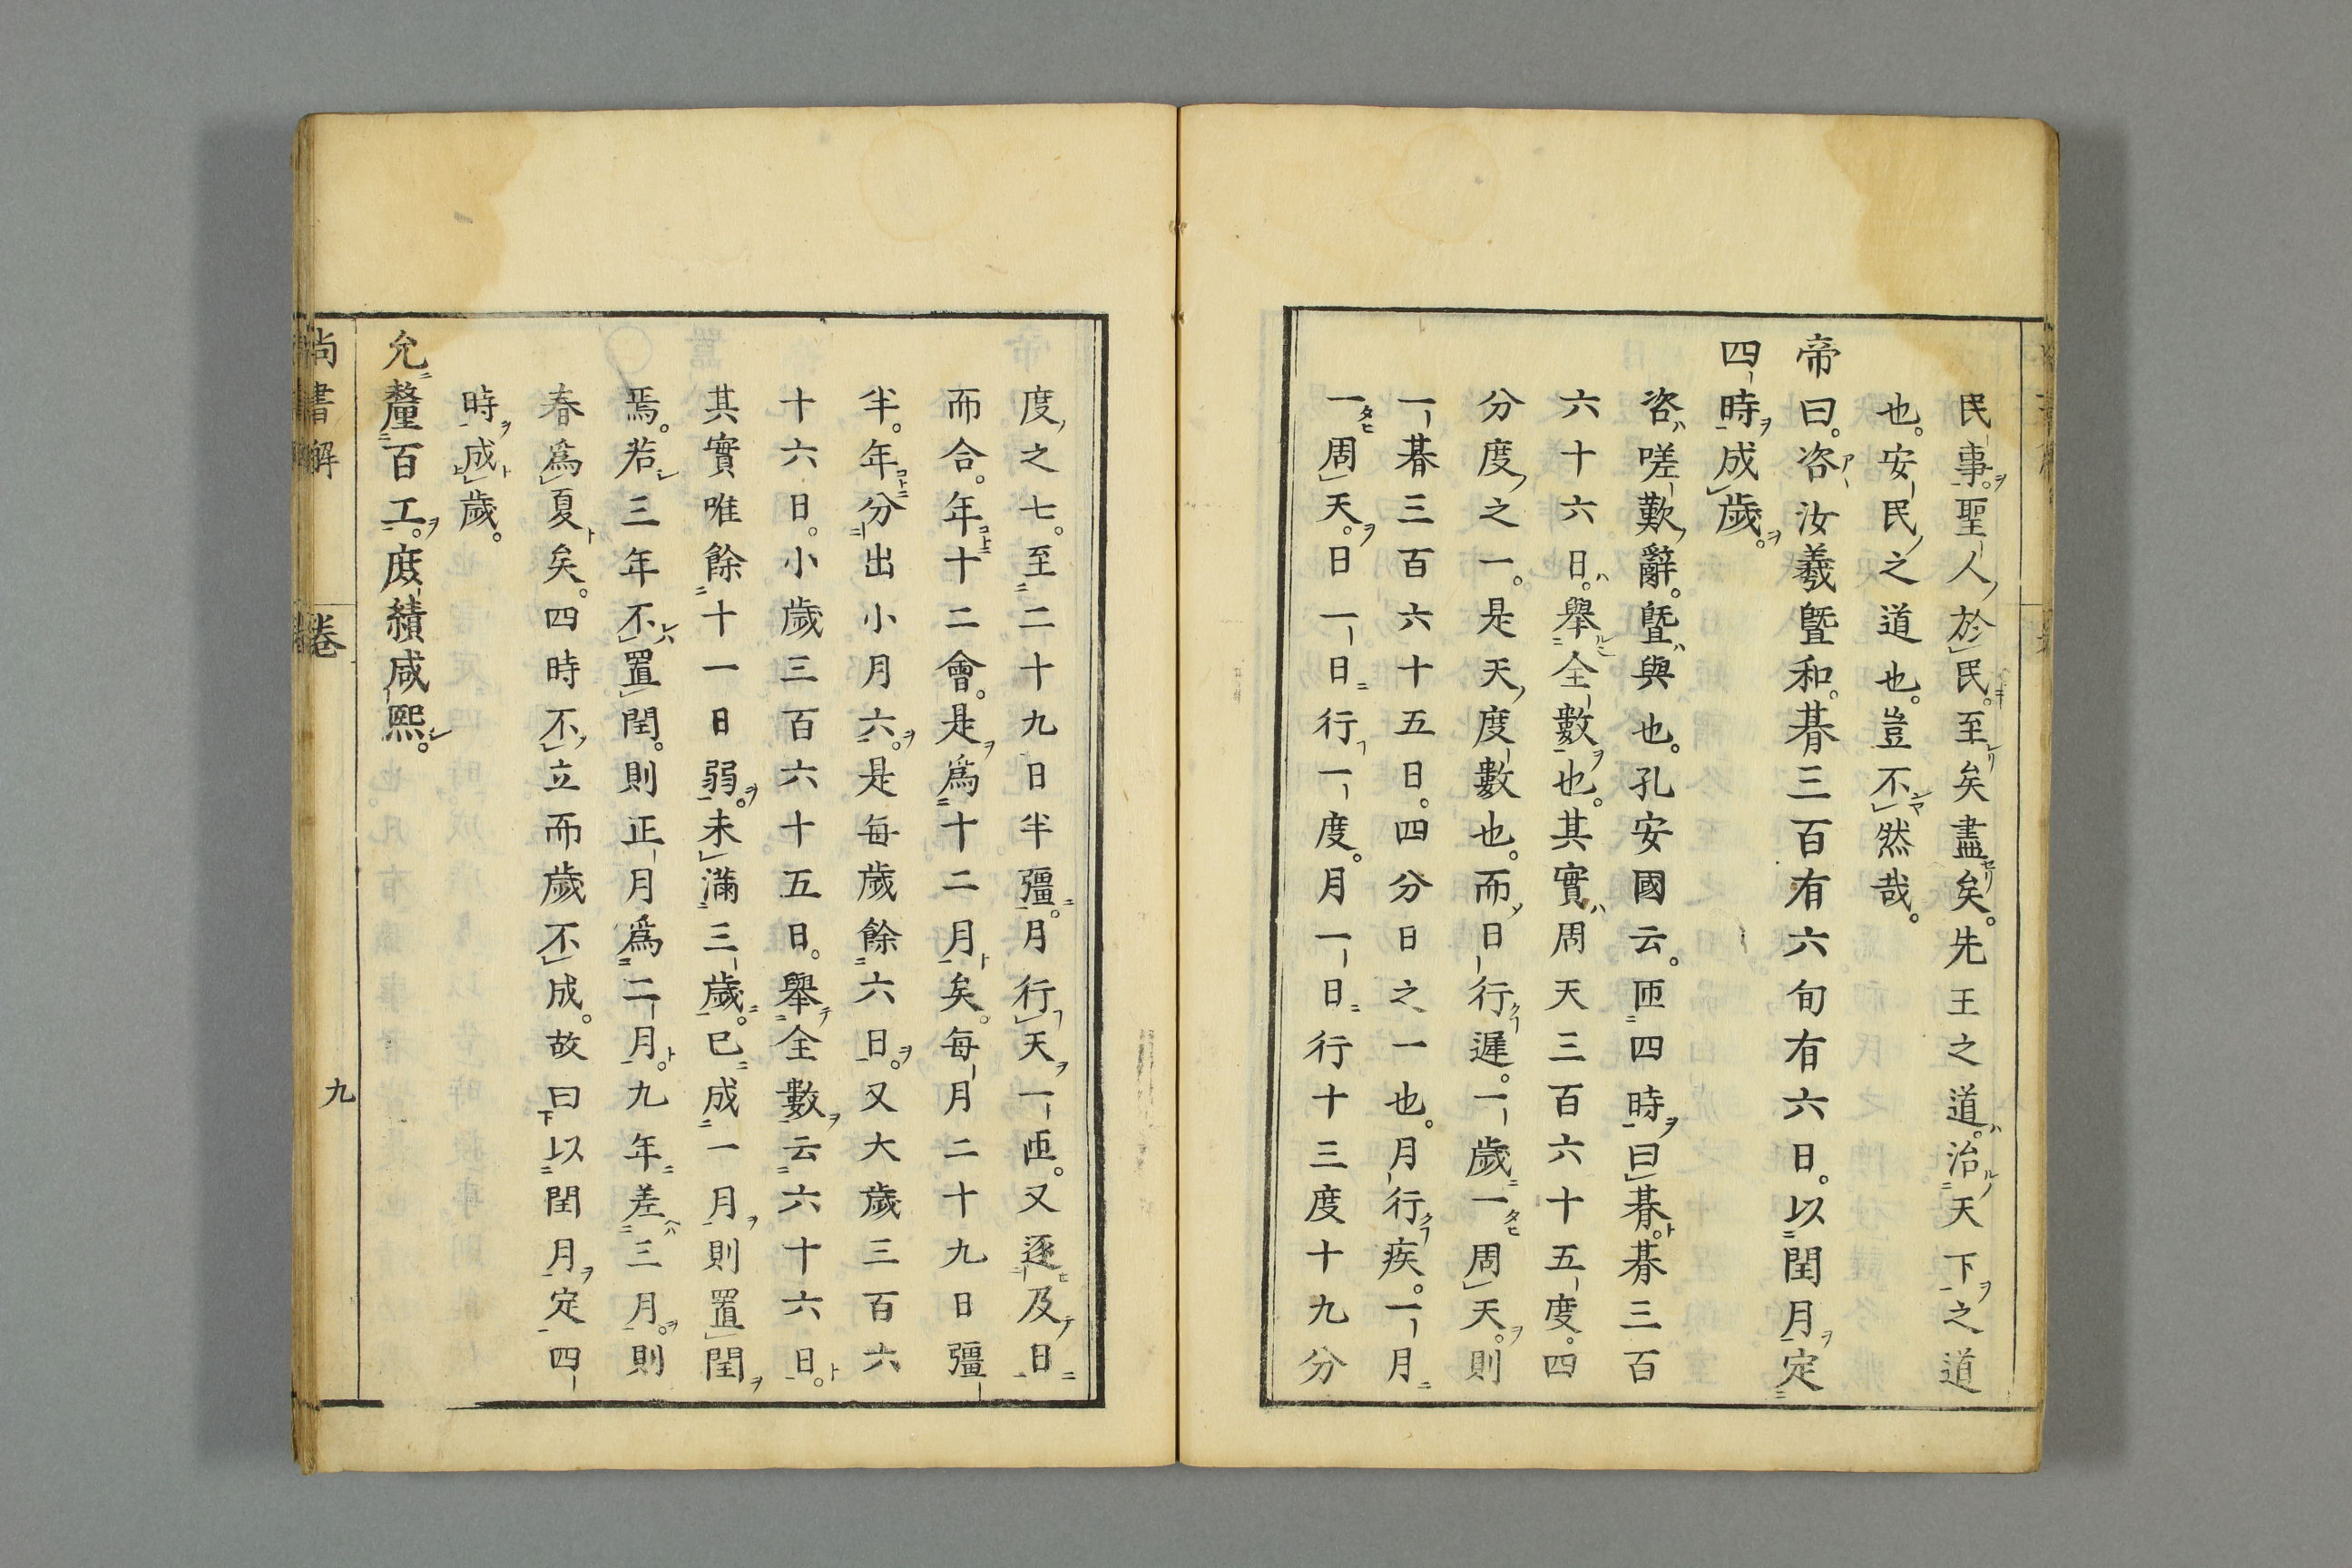 民事。聖人於民。至矣盡矣。先王之道。治天下之道
也。安民之道也。豈不然哉。
帝曰。咨汝羲曁和。朞三百有六旬有六日。以閏月定
四時成歲。
咨嗟歎辭。曁與也。孔安國云。匝四時曰朞。朞三百
六十六日。舉全數也。其實周天三百六十五度。四
分度之一。是天度數也。而日行遲。一歲一周天。則
一朞三百六十五日。四分日之一也。月行疾。一月
一周天。日一日行一度。月一日行十三度十九分
度之七。至二十九日半彊。月行天一匝。又逐及日
而合。年十二會。是爲十二月矣。每月二十九日彊
半。年分出小月六。是每歲餘六日。又大歲三百六
十六日。小歲三百六十五日。舉全數云六十六日。
其實唯餘十一日弱。未滿三歲。已成一月則置閏
焉。若三年不置閏。則正月爲二月。九年差三月。則
春爲夏矣。四時不立而歲不成。故曰以閏月定四
時成歲。
允釐百工。庶績咸熙。
尚書解 卷 九